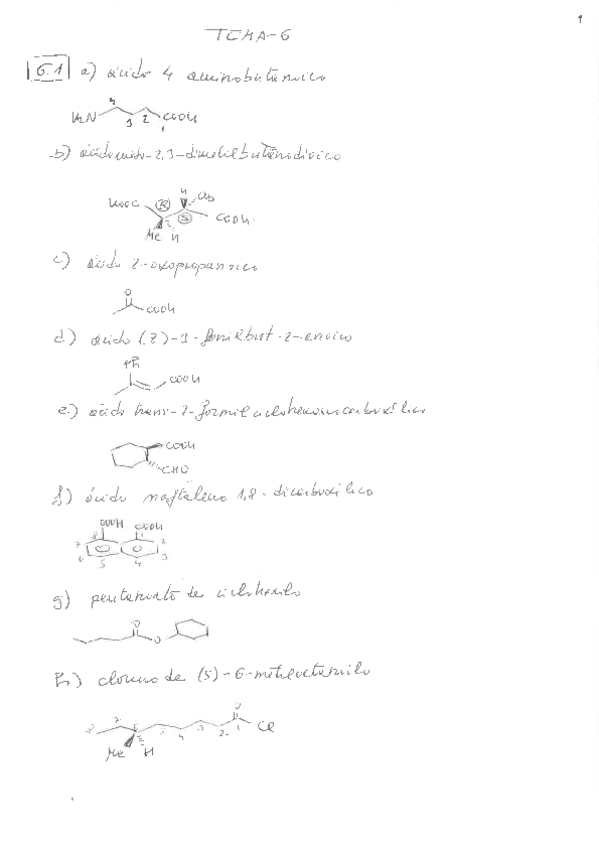 1
TEMA-6
6.1 a) ácido 4 aminobutanoico
4
H2N 3 2 COOH
1
b) ácido meso-2,3-dimetilbutanodioico
H
HOOC R S COOH
Me H
c) ácido 2-oxopropanoico
O
COOH
d) ácido (Z)-3-fenilbut-2-enoico
Ph
COOH
e) ácido trans-2-formilciclohexanocarboxílico
COOH
CHO
f) ácido naftaleno 1,8-dicarboxílico
COOH COOH
8 1
7 2
6 3
5 4
g) pentanoato de ciclohexilo
O
O
h) cloruro de (S)-6-metiloctanoilo
O
8 7 6 5 4 3 2 1 Cl
Me H